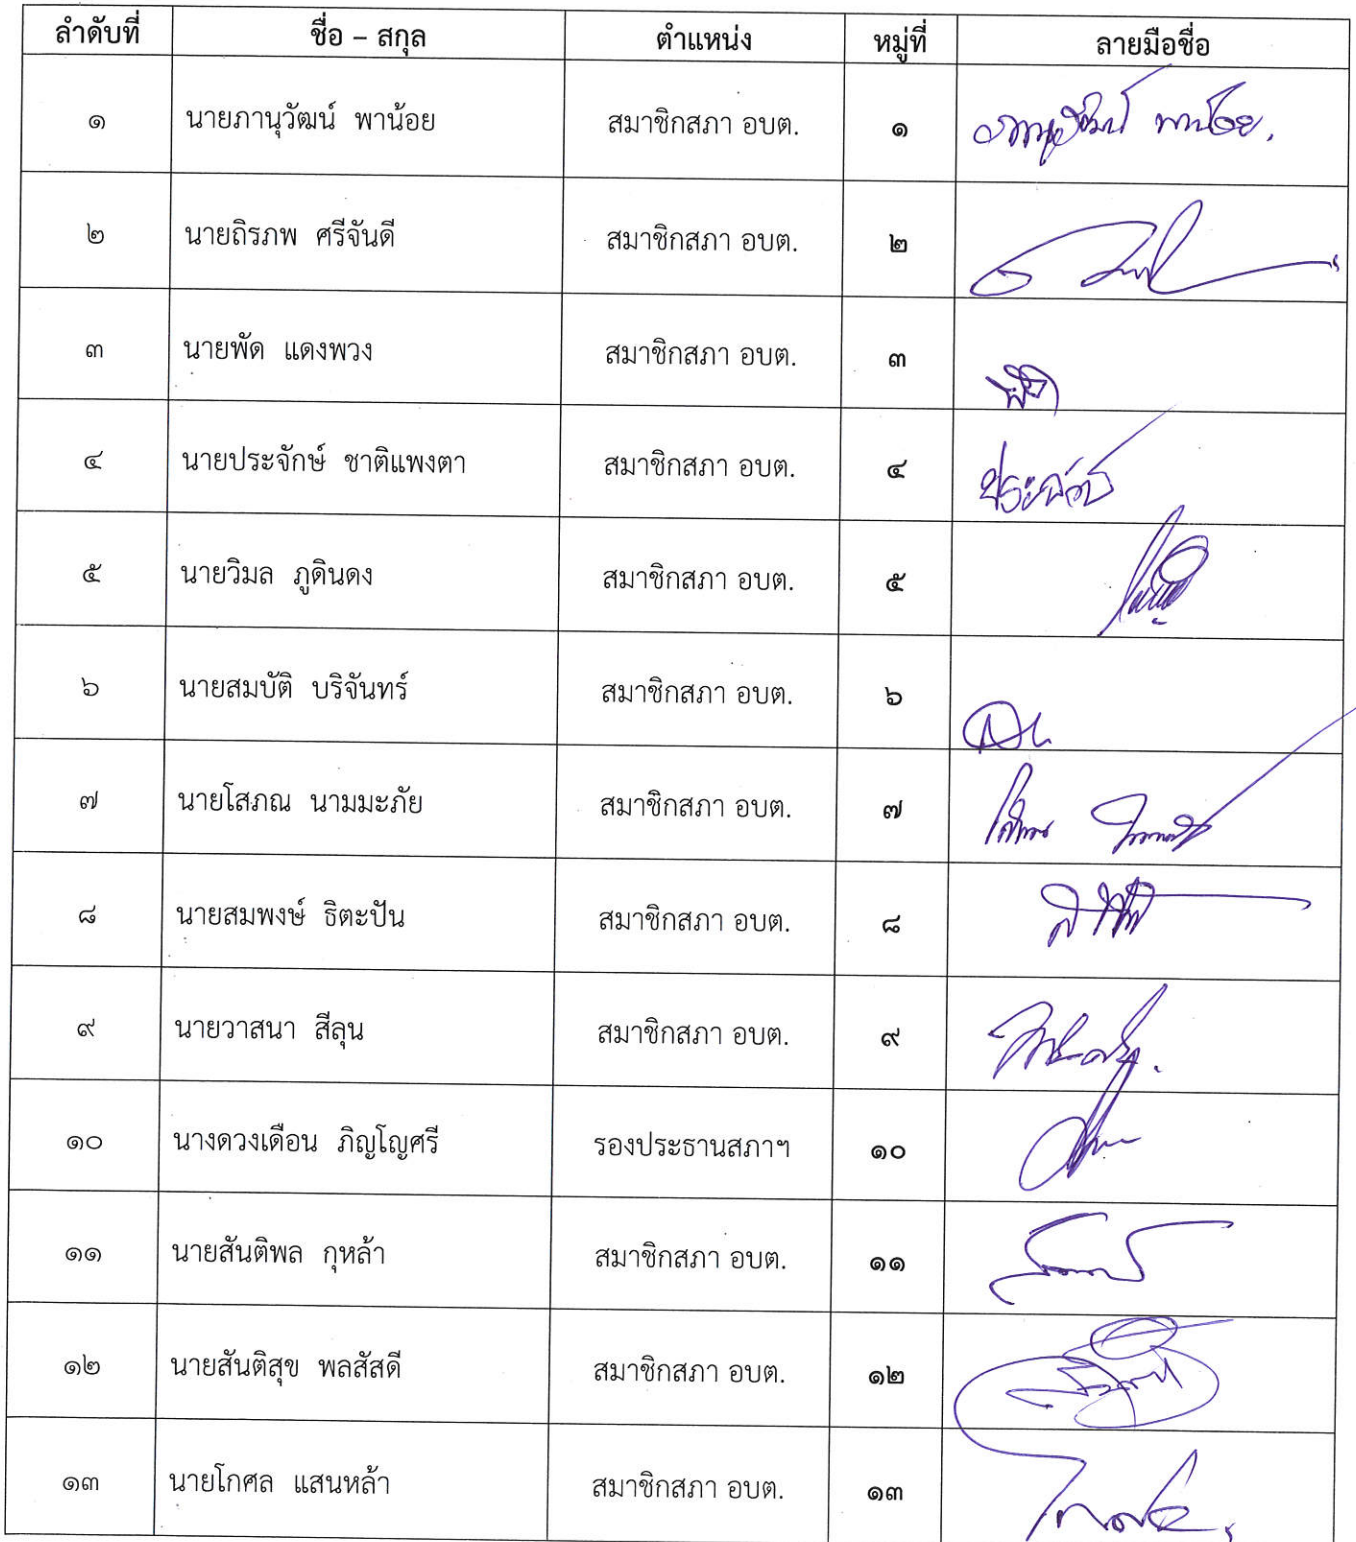 ลำดับที่ ชื่อ – สกุล ตำแหน่ง หมู่ที่ ลายมือชื่อ
๑ นายภานุวัฒน์ พาน้อย สมาชิกสภา อบต. ๑ ภานุวัฒน์ พาน้อย.
๒ นายถิรภพ ศรีจันดี สมาชิกสภา อบต. ๒
๓ นายพัด แดงพวง สมาชิกสภา อบต. ๓ พัด
๔ นายประจักษ์ ชาติแพงตา สมาชิกสภา อบต. ๔ ประจักษ์
๕ นายวิมล ภูดินดง สมาชิกสภา อบต. ๕
๖ นายสมบัติ บริจันทร์ สมาชิกสภา อบต. ๖
๗ นายโสภณ นามมะภัย สมาชิกสภา อบต. ๗
๘ นายสมพงษ์ ธิตะปัน สมาชิกสภา อบต. ๘
๙ นายวาสนา สีลุน สมาชิกสภา อบต. ๙
๑๐ นางดวงเดือน ภิญโญศรี รองประธานสภาฯ ๑๐
๑๑ นายสันติพล กุหล้า สมาชิกสภา อบต. ๑๑
๑๒ นายสันติสุข พลสัสดี สมาชิกสภา อบต. ๑๒
๑๓ นายโกศล แสนหล้า สมาชิกสภา อบต. ๑๓